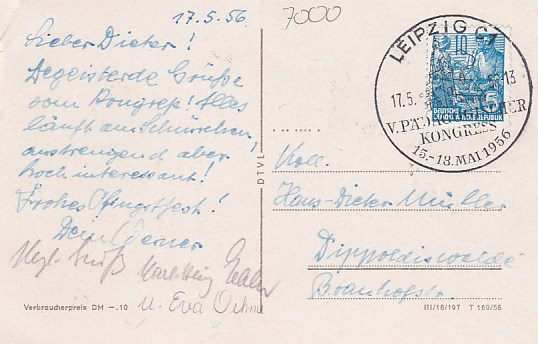 17.5.56
7000
Lieber Dieter!
Begeisterte Grüße
vom Kongreß! Alles
läuft am Schnürchen,
anstrengend aber
hoch interessant!
Frohes Pfingstfest!
Dein Werner
Herzl. Gruß
u. Eva Oehme
Verbraucherpreis DM –.10
DTVL
LEIPZIG C1
17.5. 13
V. PÄDAGOGISCHER
KONGRESS
15.-18. MAI 1956
10
5
DEUTSCHE
DEMOKRATISCHE REPUBLIK
Koll.
Hans-Dieter Müller
Dippoldiswalde
Brauhofstr.
III/18/197 T 169/56